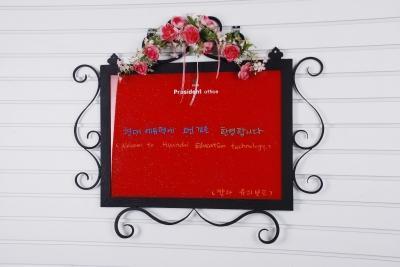 President office
현대에듀텍에 오신걸 환영합니다
Welcome to Hyundai Education technology.